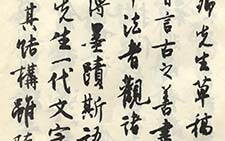 卿先生草稿
昔言古之善書
中法者觀諸
得墨蹟斯語
先生一代文字
其結構雖